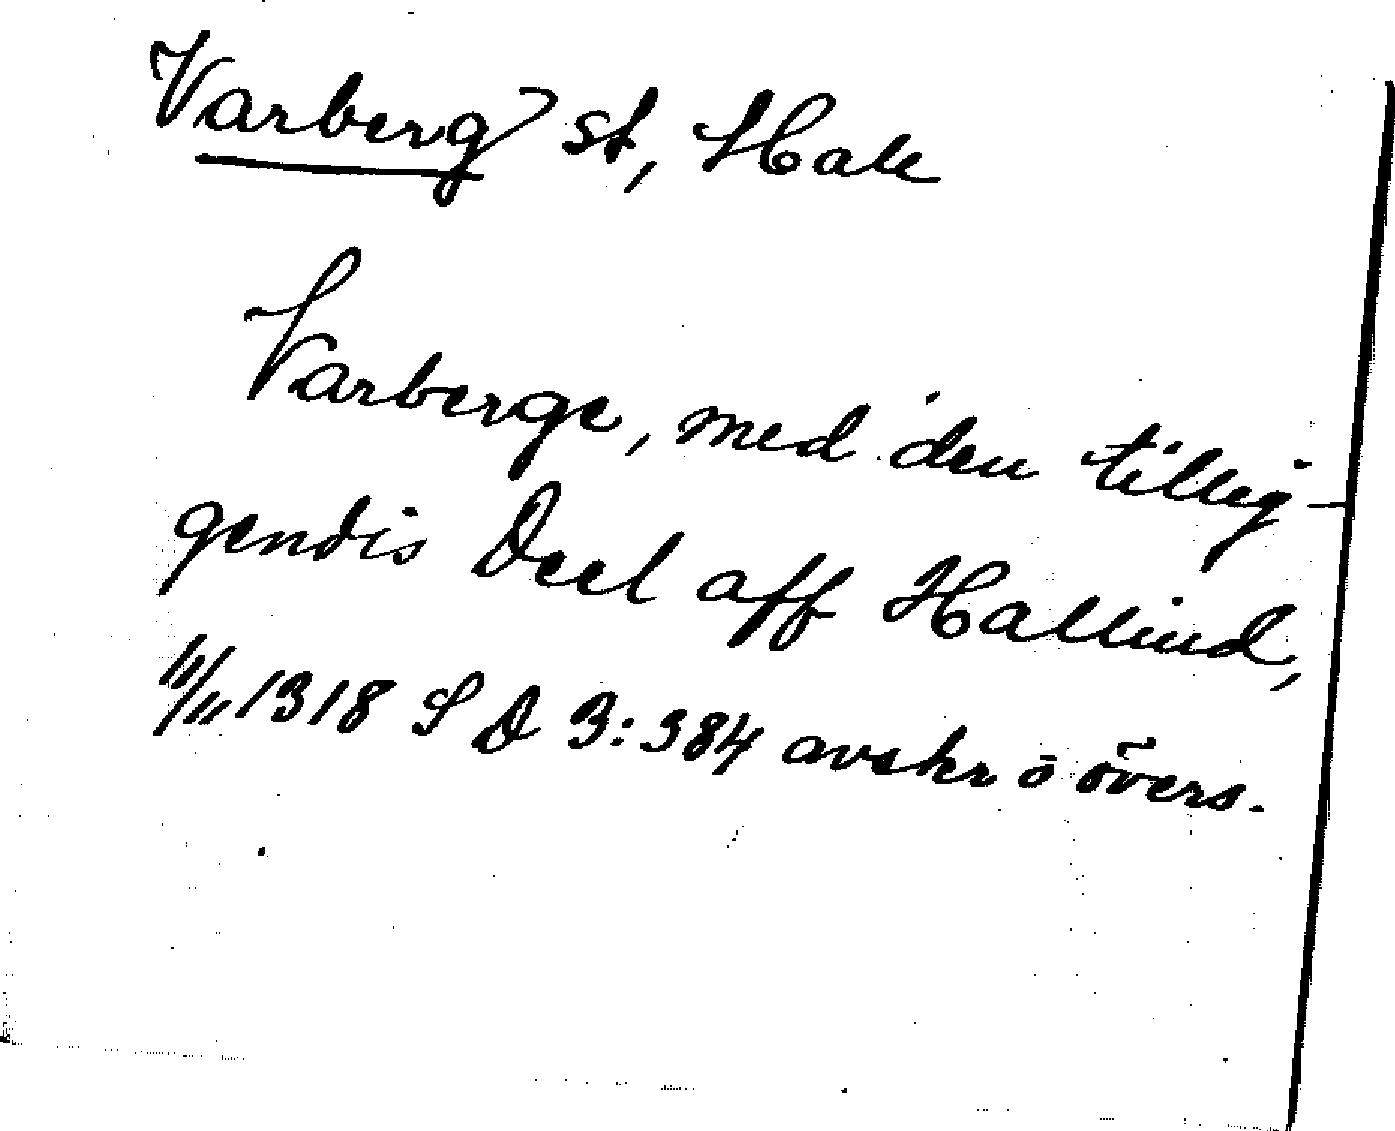 Varberg st, Hall
Varberge, med den tillig-
gendis Deel aff Hallind,
11/11 1318 SD 3:384 avskr o övers.